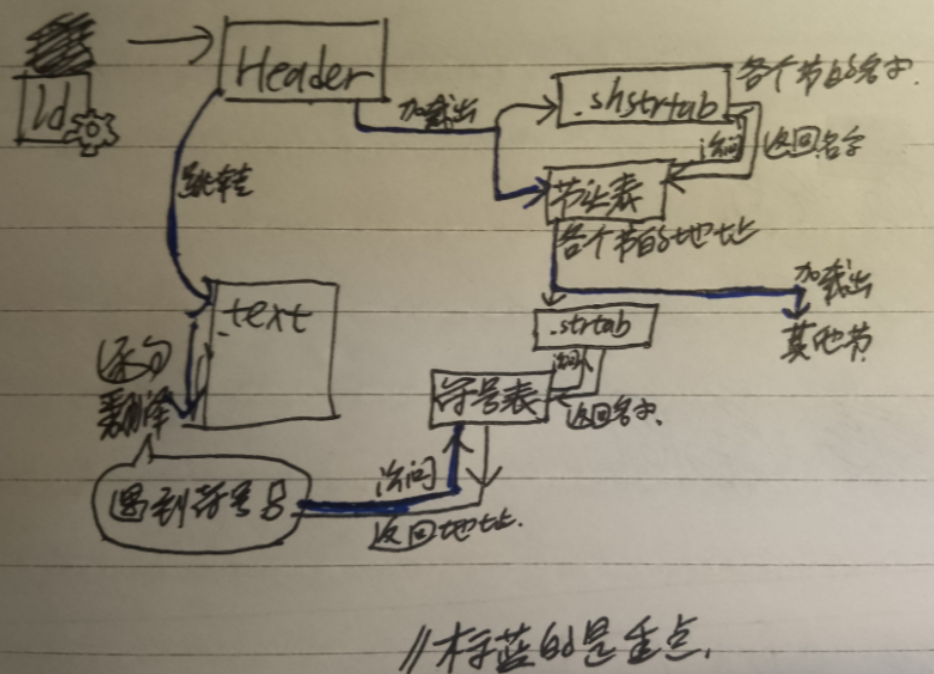 ld
Header
加载出
.shstrtab
各个节的名字.
访问
返回名字
跳转
节头表
各个节的地址
加载出
其他节
.text
.strtab
逐句
翻译
访问
符号表
返回名字.
遇到符号
访问
返回地址.
//标蓝的是重点.